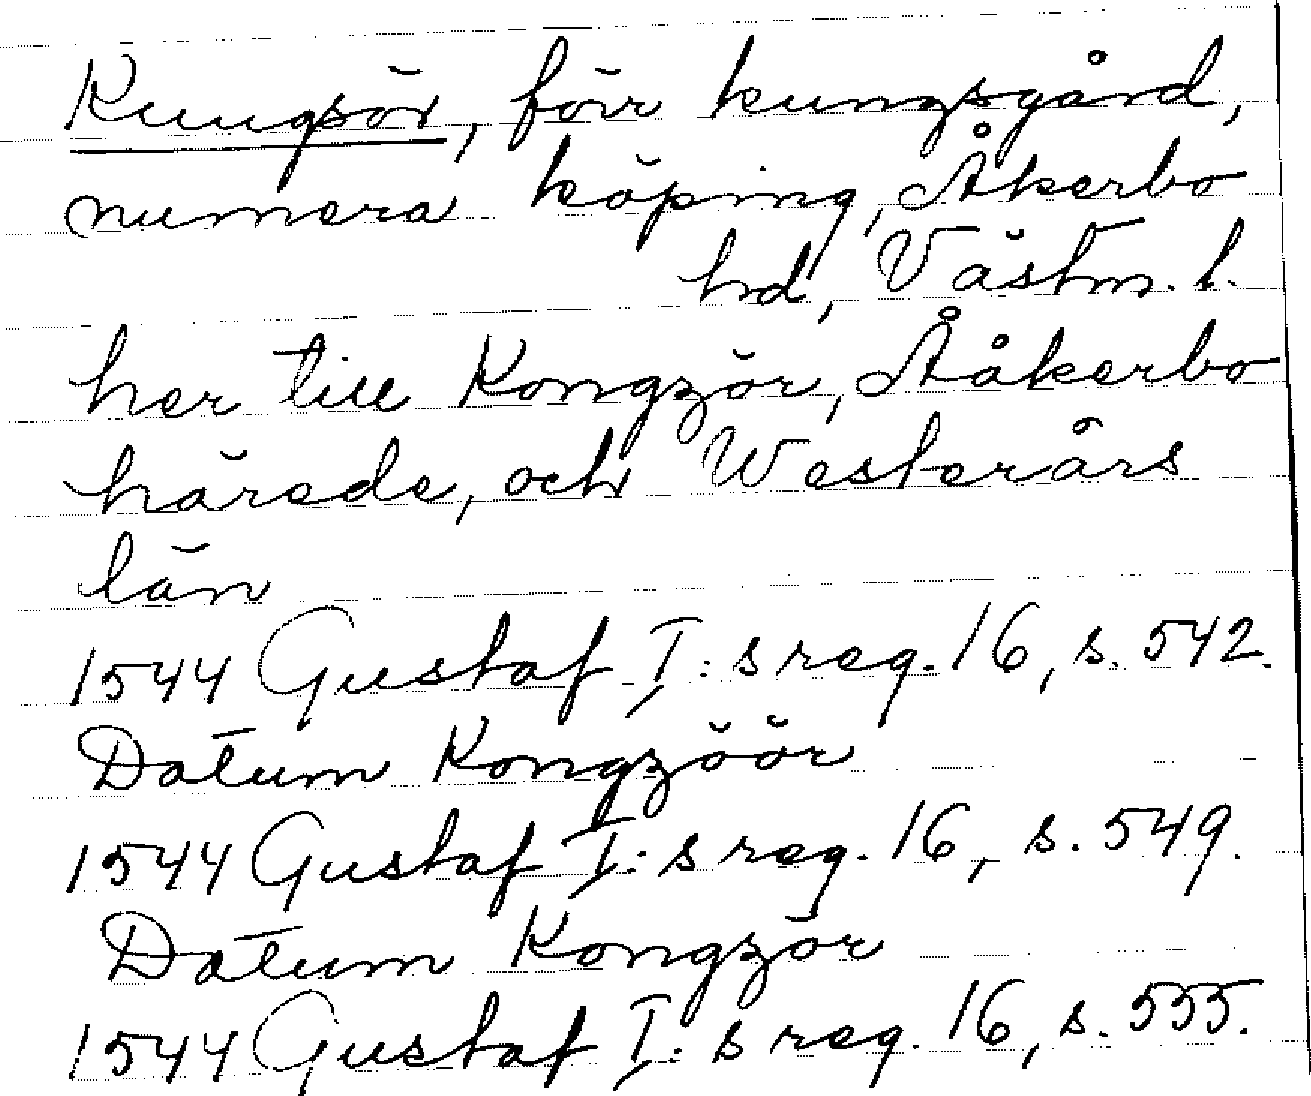 Kungsör, förr kungsgård,
numera köping, Åkerbo
hd, Västm. l.
her till Kongzör, Ååkerbo
härede, och Westerårs
län
1544 Gustaf I:s reg. 16, s. 542.
Datum Kongzöör
1544 Gustaf I:s reg. 16, s. 549.
Datum Kongzör
1544 Gustaf I:s reg. 16, s. 555.